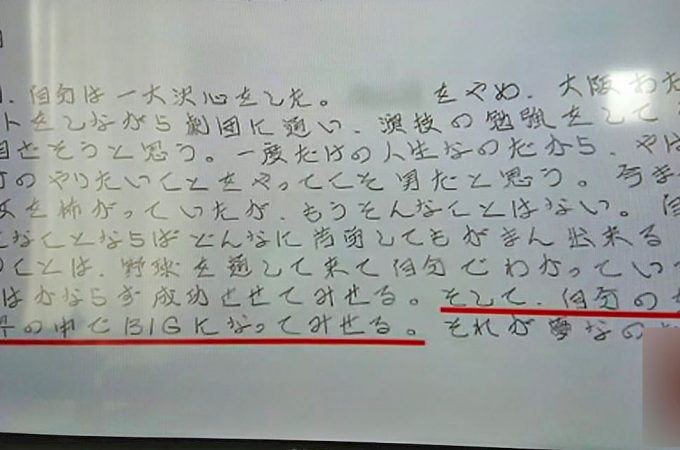 、自分は一大決心をした。
をやめ、大阪
トをしながら劇団に通い、演技の勉強をして
目ざそうと思う。一度だけの人生なのだから、やは
のやりたいことをやってこそ男だと思う。
を怖がっていたが、もうそんなことはない。
なことならばどんなに苦労してもがまん出来る
ことは、野球を通して来て自分でわかってい
はかならず成功させてみせる。そして、自分の
の中でBIGになってみせる。それが夢なの